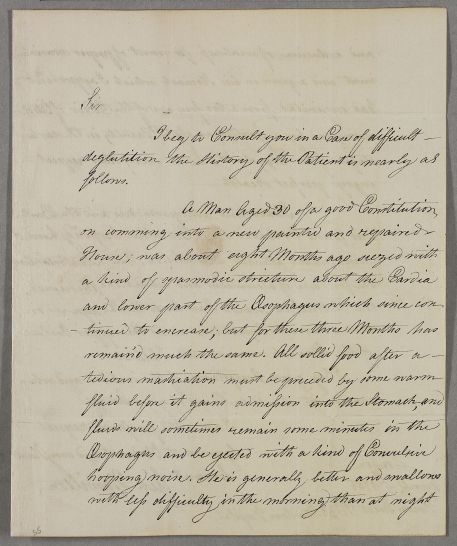 Sir
I beg to Consult you in a Case of difficult
deglutition the History of the Patient is nearly as
follows.
A Man Aged 30 of a good Constitution,
on comming into a new painted and repaired
House; was about eight Months ago seezed with
a kind of spasmodic stricture about the Cardia
and lower part of the Œsophagus which since con-
tinued to encrease; but for these three Months has
remain'd much the same. All sollid food after a
tedious mastication must be preceded by some warm
fluid before it gains admission into the Stomach, and
fluids will sometimes remain some minutes in the
Œsophagus and be ejected with a kind of Convulsive
hooping noise. He is generally better and swallows
with less difficulty in the morning than at night